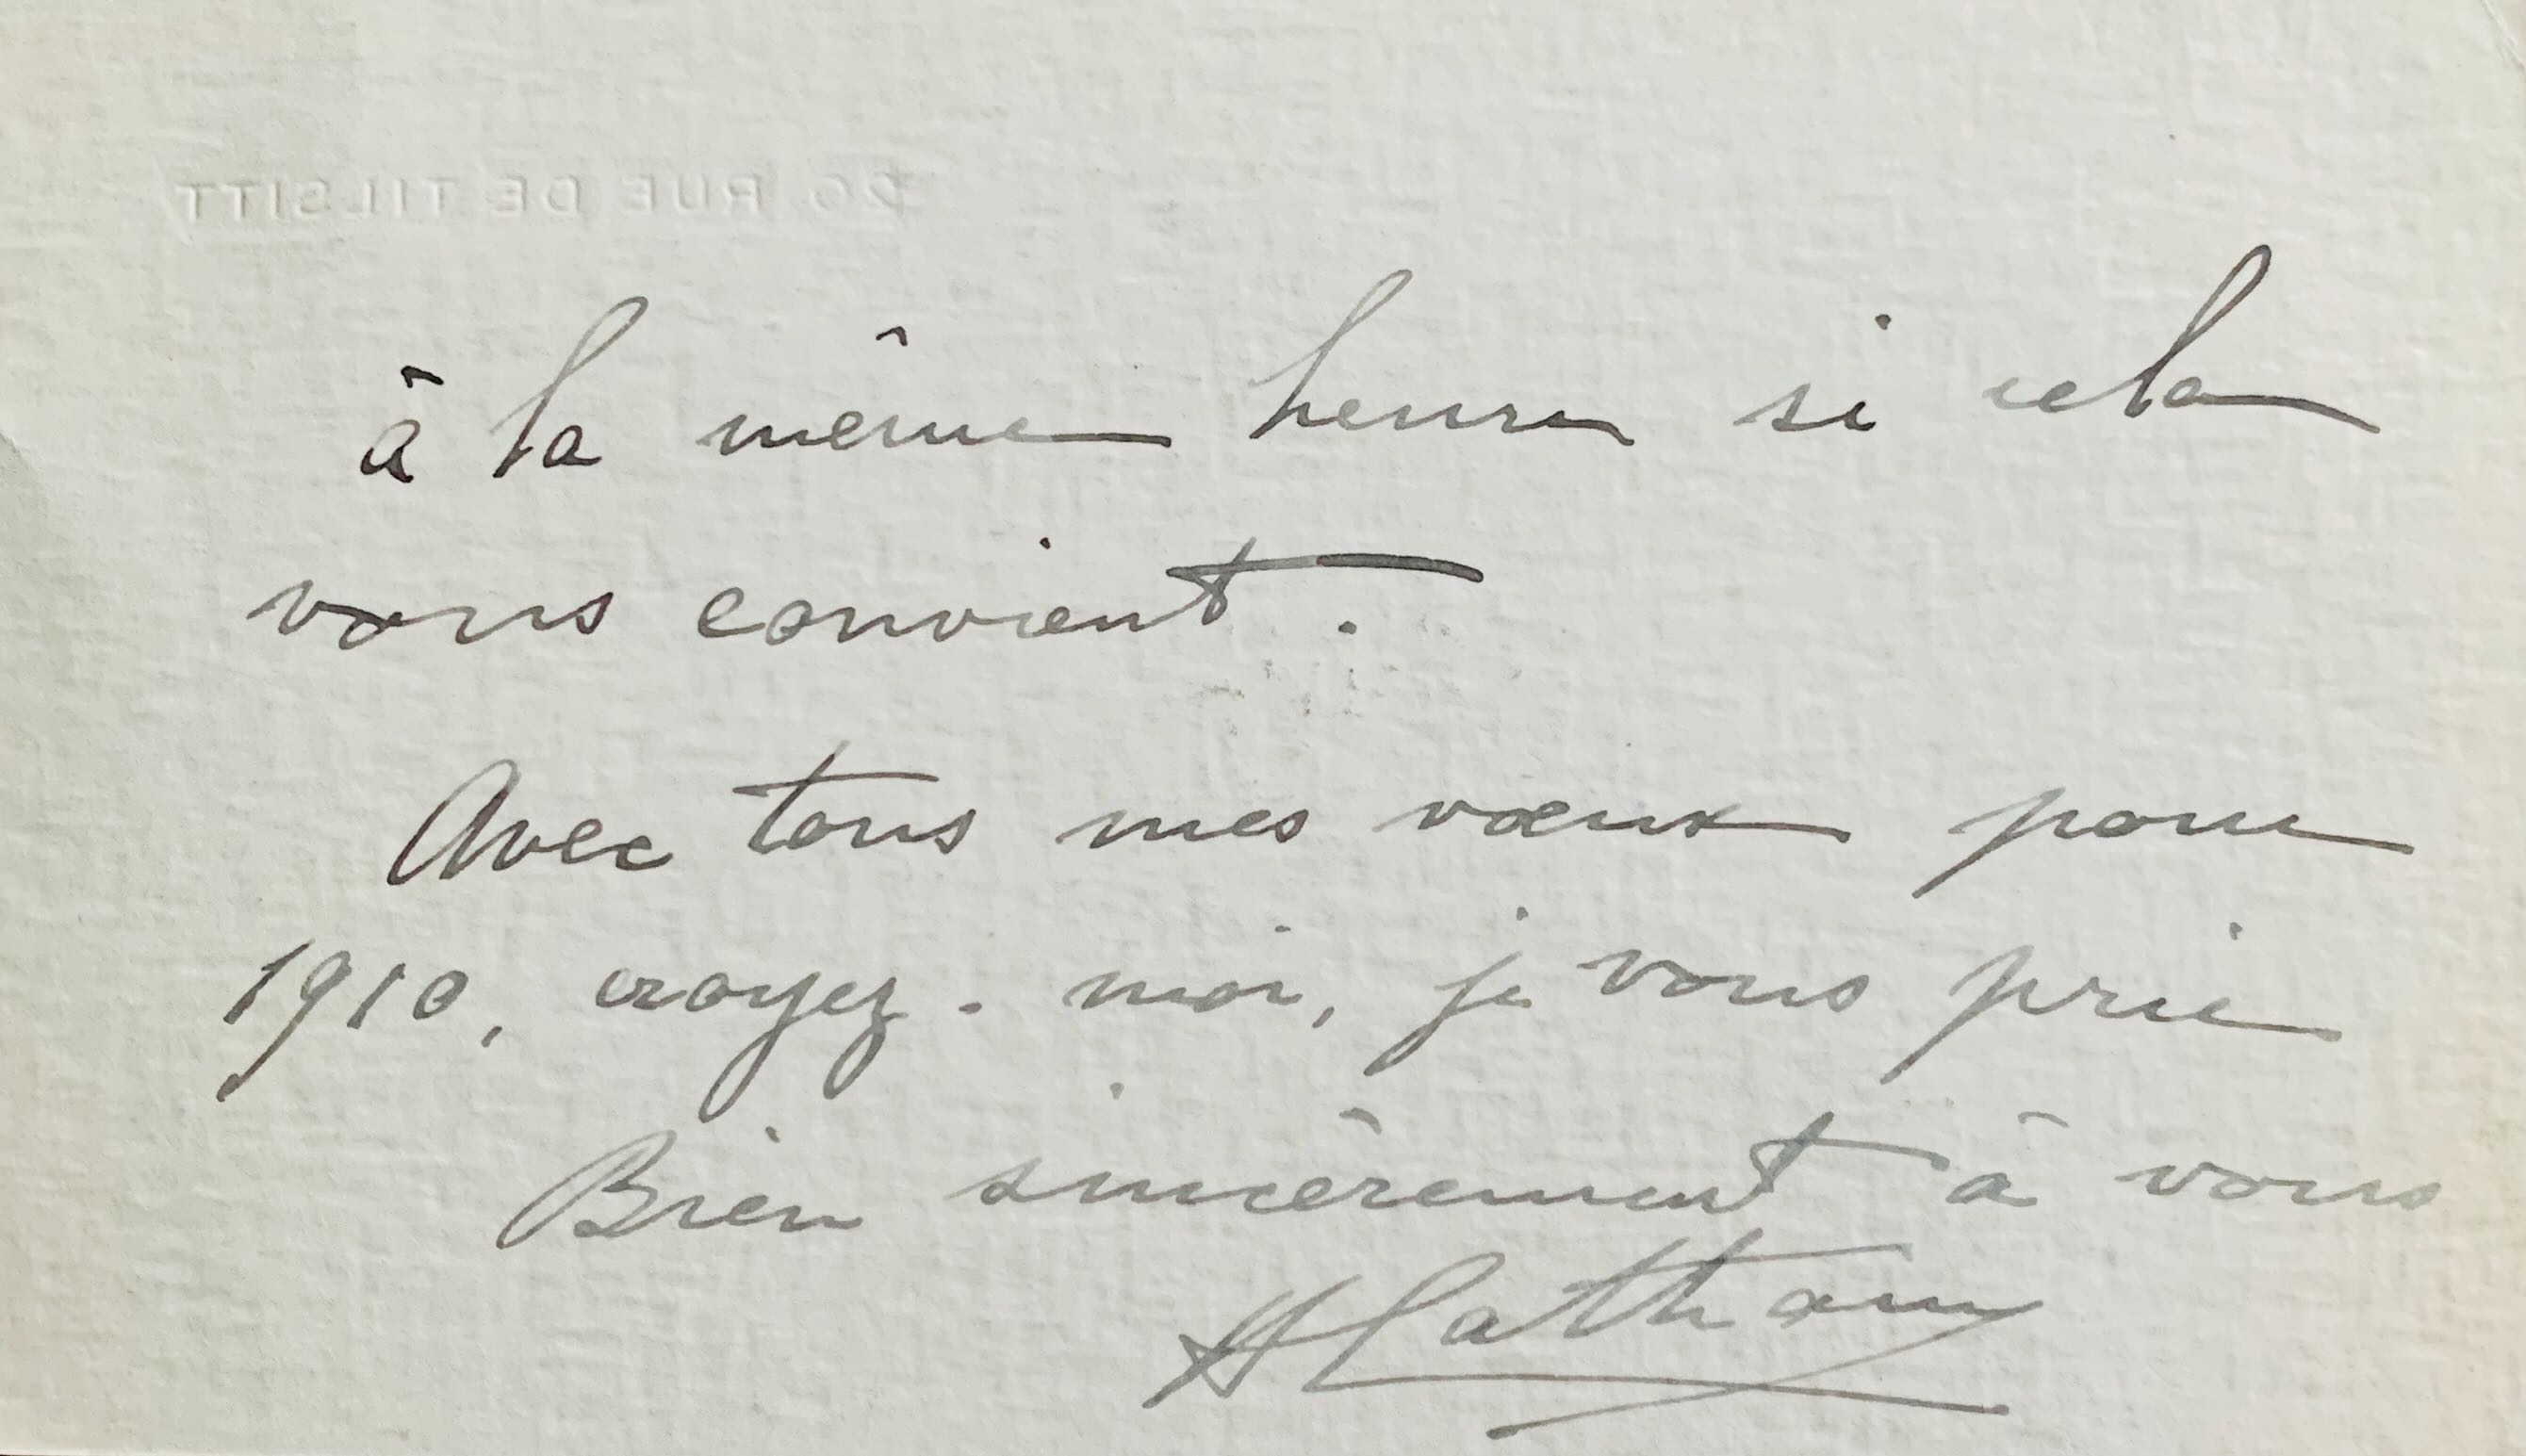 20, RUE DE TILSITT
à la même heure si cela
vous convient.
Avec tous mes vœux pour
1910, croyez-moi, je vous prie
Bien sincèrement à vous
HLatham